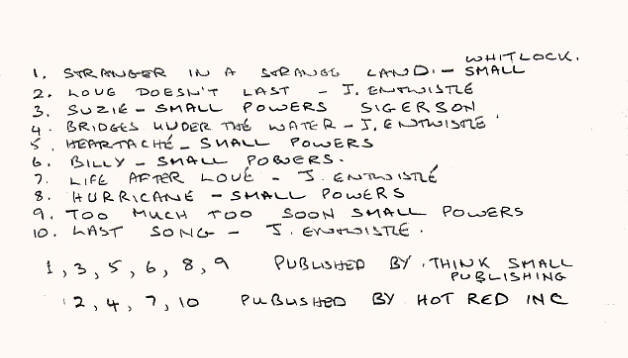 WHITLOCK.
1. STRANGER IN A STRANGE LAND. - SMALL
2. LOVE DOESN'T LAST - J. ENTWISTLE
3. SUZIE - SMALL POWERS SIGERSON
4. BRIDGES UNDER THE WATER - J. ENTWISTLE
5. HEARTACHE - SMALL POWERS
6. BILLY - SMALL POWERS.
7. LIFE AFTER LOVE - J. ENTWISTLE
8. HURRICANE - SMALL POWERS
9. TOO MUCH TOO SOON SMALL POWERS
10. LAST SONG - J. ENTWISTLE.
1, 3, 5, 6, 8, 9 PUBLISHED BY. THINK SMALL
PUBLISHING
2, 4, 7, 10 PUBLISHED BY HOT RED INC